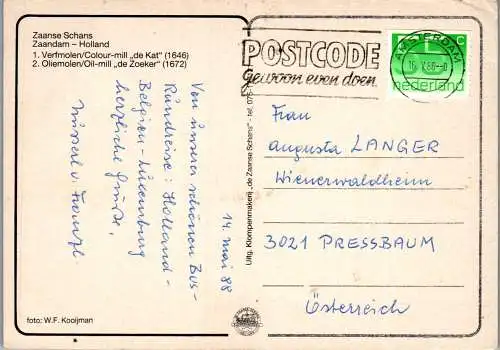 Zaanse Schans
Zaandam – Holland
1. Verfmolen/Colour-mill „de Kat" (1646)
2. Oliemolen/Oil-mill „de Zoeker" (1672)
14. Mai 88
Von unserer schönen Bus-
Rundreise: Holland-
Belgien-Luxemburg
herzliche Grüße,
foto: W.F. Kooijman
Uitg. Klompenmakerij „de Zaanse Schans" - tel. 075
POSTCODE
gewoon even doen
AMSTERDAM
nederland
Frau
Augusta LANGER
Wienerwaldheim
3021 PRESSBAUM
Österreich